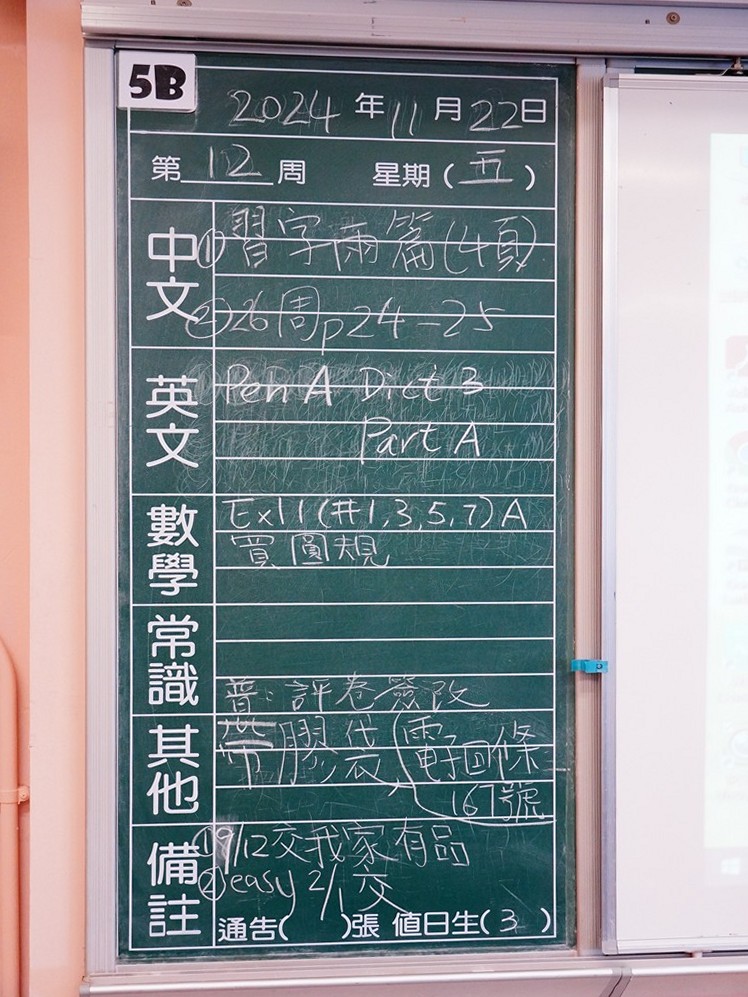 5B
2024年11月22日
第12周 星期(五)
中文
①習字兩篇(4頁)
②26周p24-25
英文
Pen A Dict 3
Part A
數學
Ex11(#1,3,5,7)A
買圓規
常識
普：評卷簽改
其他
帶膠袋(電子回條
167號
備註
①9/12交我家有品
②easy 2/1交
通告( )張 值日生(3)